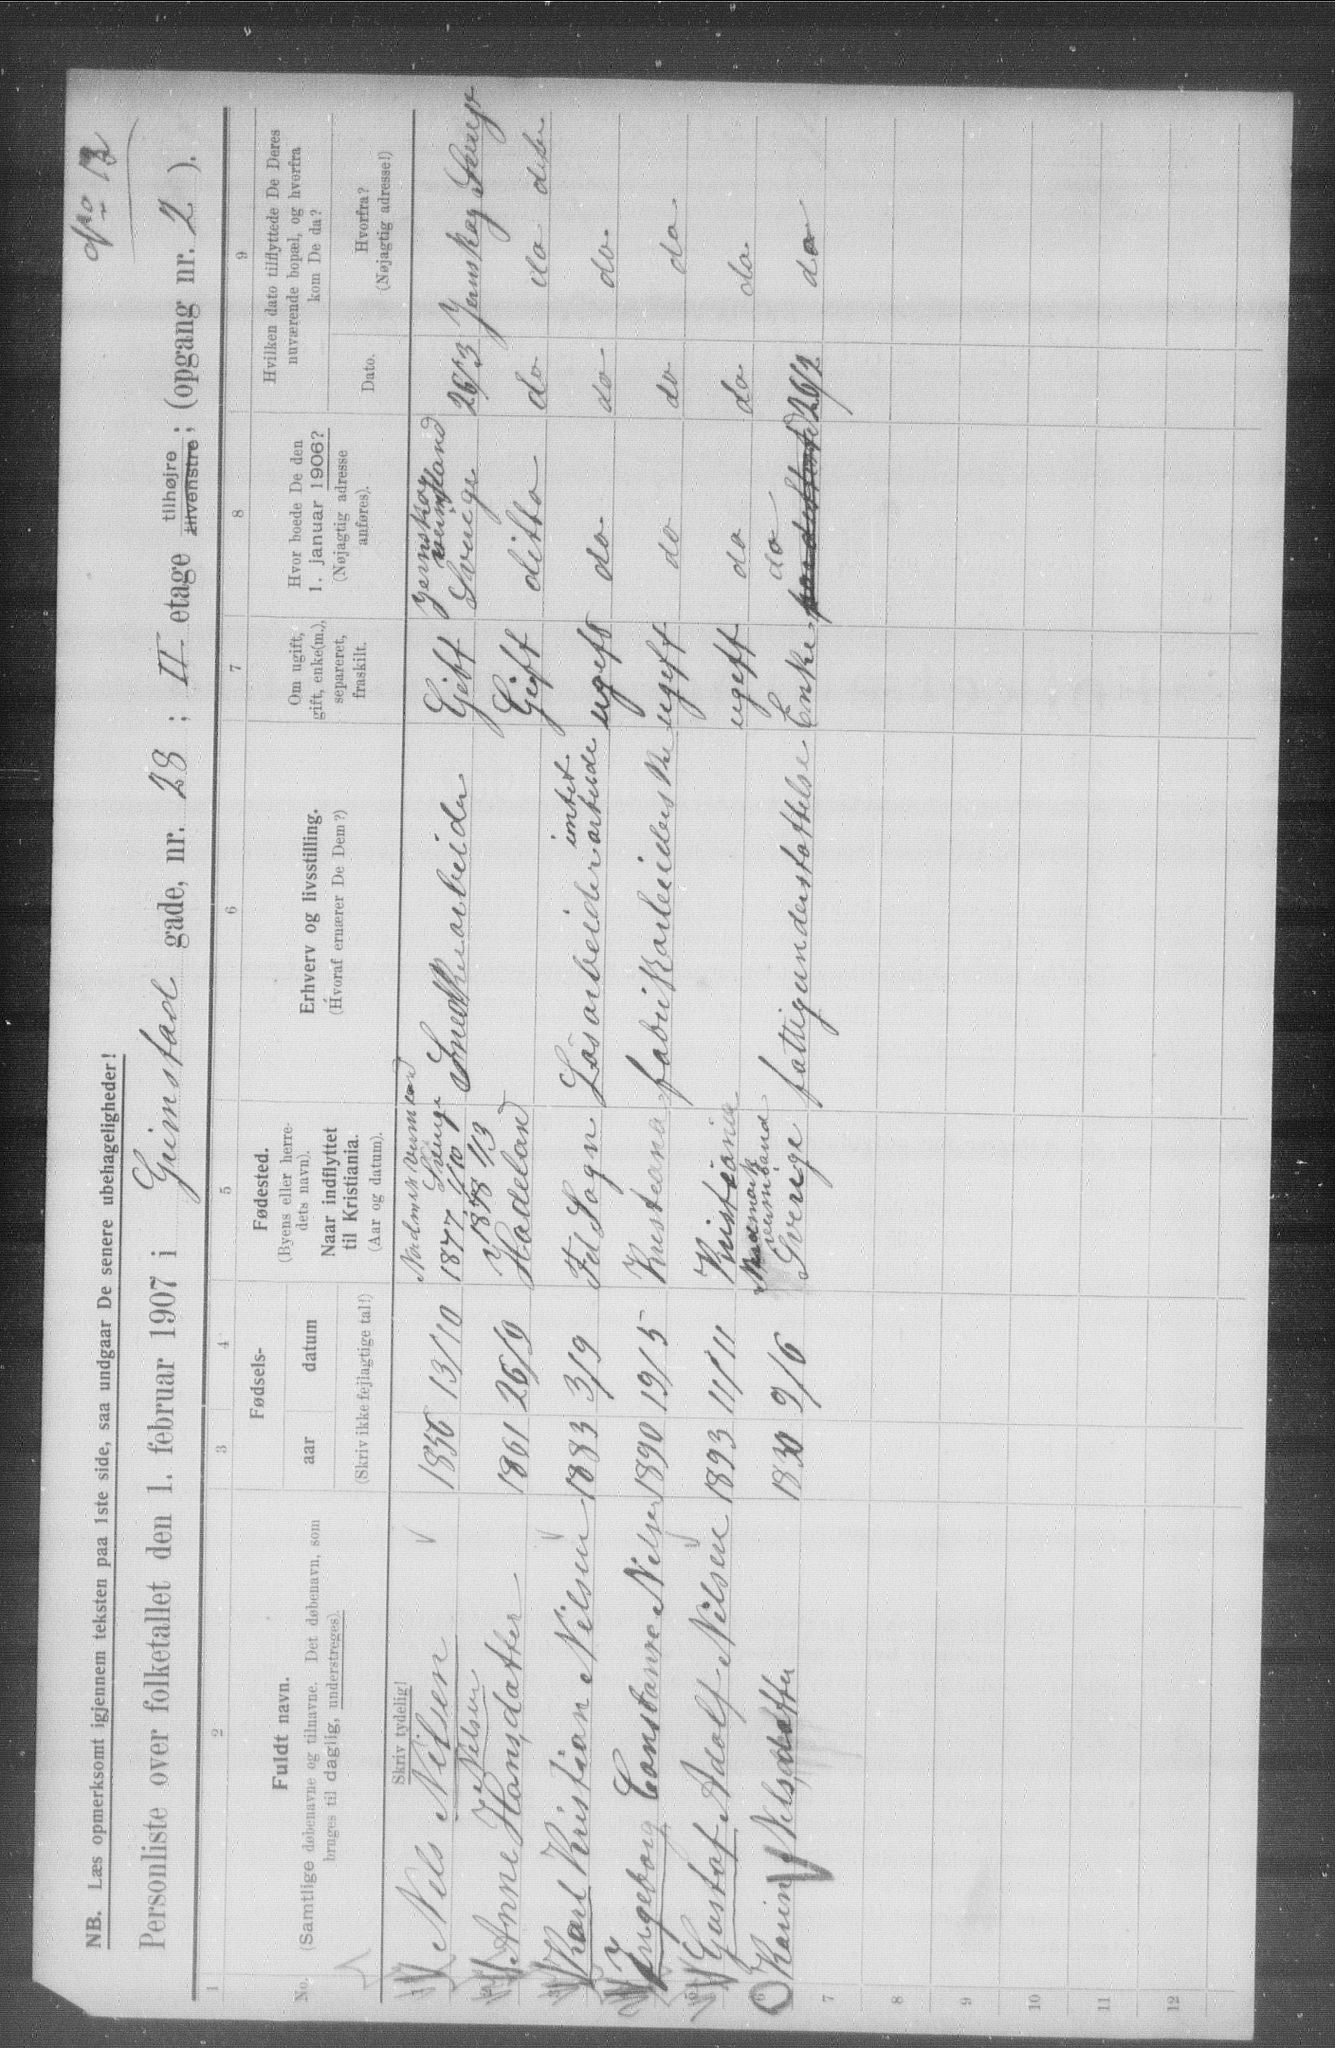 No 13
NB. Læs opmerksomt igjennem teksten paa 1ste side, saa undgaar De senere ubehageligheder!
Personliste over folketallet den 1. februar 1907 i Grimstad gade, nr. 28 ; II etage tilhøjre tilvenstre ; (opgang nr. 2 ).
1 2 3 4 5 6 7 8 9
No.
Fuldt navn.
(Samtlige døbenavne og tilnavne. Det døbenavn, som
bruges til daglig, understreges).
Fødsels-
aar datum
(Skriv ikke fejlagtige tal!)
Fødested.
(Byens eller herre-
dets navn).
Naar indflyttet
til Kristiania.
(Aar og datum).
Erhverv og livsstilling.
(Hvoraf ernærer De Dem?)
Om ugift,
gift, enke(m.),
separeret,
fraskilt.
Hvor boede De den
1. januar 1906?
(Nøjagtig adresse
anføres).
Hvilken dato tilflyttede De Deres
nuværende bopæl, og hvorfra
kom De da?
Dato.
Hvorfra?
(Nøjagtig adresse!)
Skriv tydelig!
1 Nils Nilsen 1856 13/10 Sverige 1877 1/10 Snedkerarbeider Gift Jernskog Sverige 26/3 Jernskog Sverige
2 Anne Hansdatter Nilsen 1861 26/9 1878 1/3 Hadeland Gift ditto do do
3 Karl Kristian Nilsen 1883 3/9 Sogn Løsarbeider intet arbeide ugift do do do
4 Ingeborg Constanse Nilsen 1890 19/5 Kristiania fabrikarbeiderske ugift do do do
5 Gustaf Adolf Nilsen 1893 11/11 Kristiania ugift do do do
6 Karin Nilsdatter 1830 9/6 Sverige fattigunderstøttelse Enke do 26/2 do
7
8
9
10
11
12